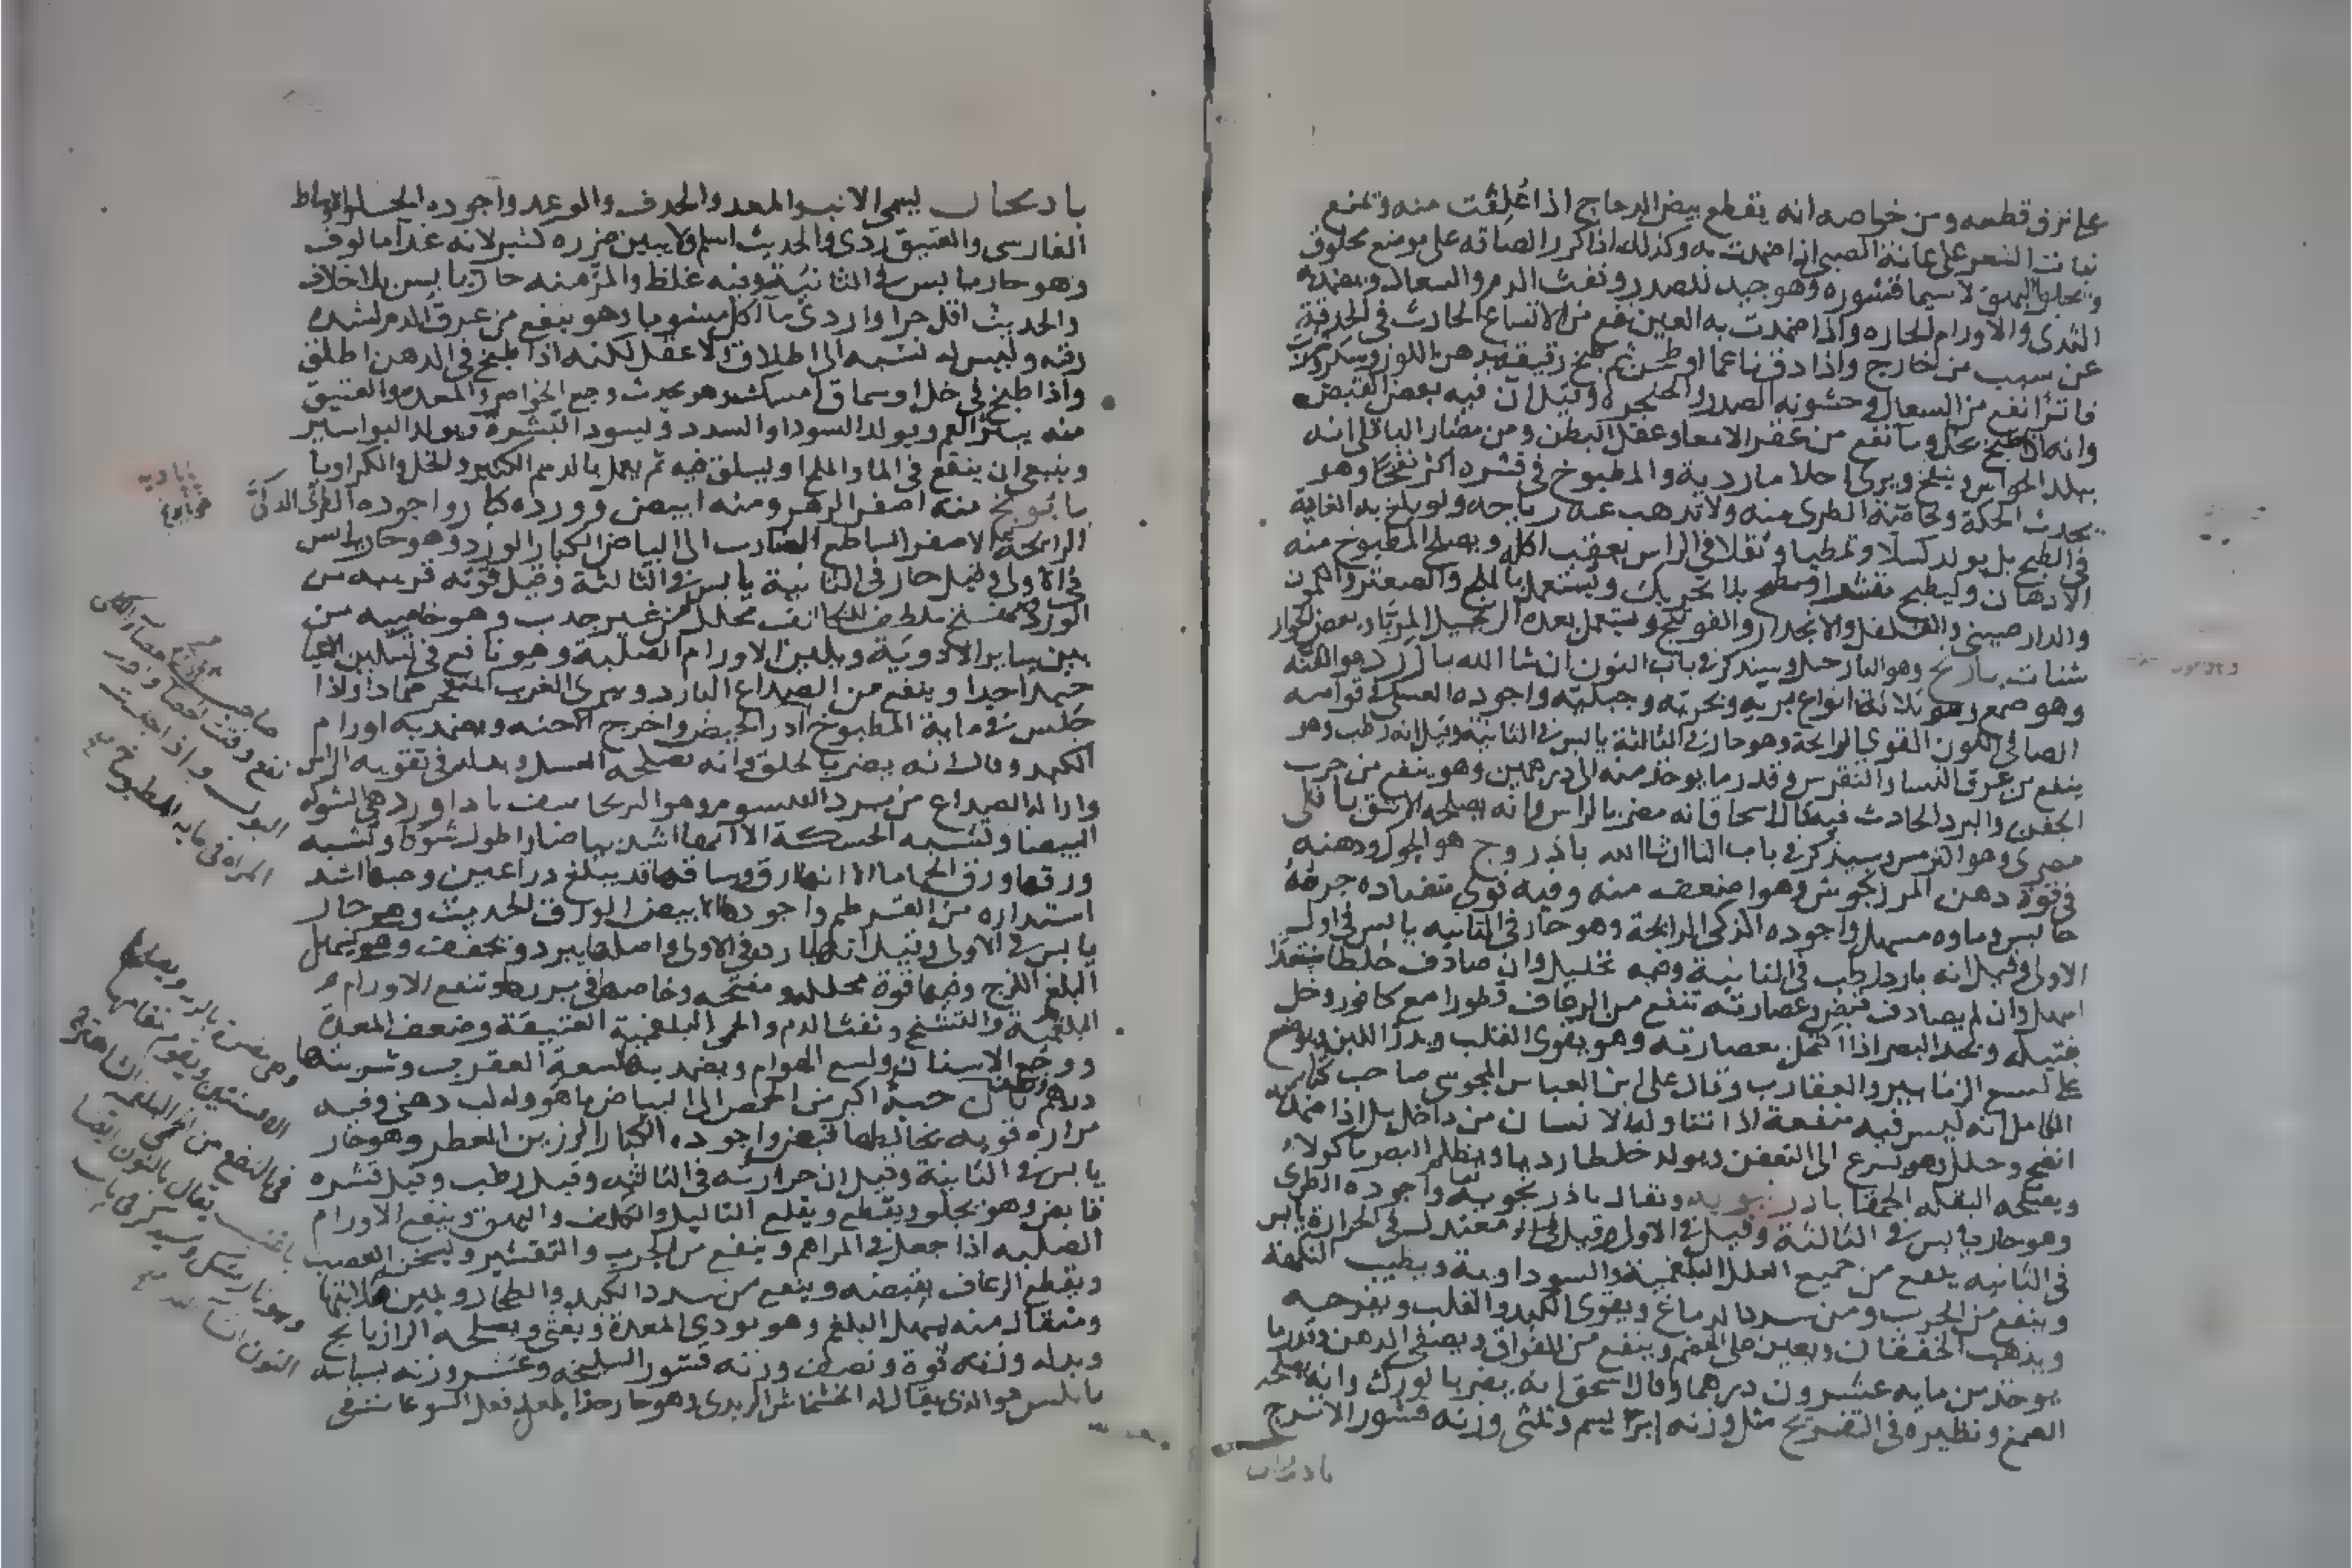 على نزف قطعه ومن خواصه انه يقطع بيض الدجاج اذا عُلِفَت منه وتمنع
نبات الشعر على عانة الصبى اذا ضمدت به وكذلك اذا كرر الصاقه على موضع محلوق
ويجلو البهق لا سيما قشوره وهو جيد للصدر ونفث الدم والسعال ويضمد به
الثدى والاورام الحاره واذا ضمدت به العين نفع من الاتساع الحادث فى الحدقة
عن سبب من خارج واذا دق ناعما او طحن ثم طبخ رقيقه بدهن اللوز وسكر كان
فاترا نفع من السعال وخشونه الصدر والحنجرة وقيل ان فيه بعض القبض
وانه اذا طبخ بخل وما نفع من عقر الامعا وعقل البطن ومن مضار الباقلى انه
يبلد الحواس وينفخ ويرى احلاما ردية والمطبوخ فى قشره اكثر نفخا وهو
يحدث الحكة وخاصة الطرى منه ولا تذهب عنه رياحه ولو بلغ به الغاية
فى الطبخ بل يولد كسلا وتمطيا وثقلا فى الراس بعقب اكله ويصلح المطبوخ منه
الادهان وليطبخ مقشرا ويطبخ بلا تحريك ويستعمل بالملح والصعتر والكمون
والدارصينى والفلفل والانجدان والفوتنج ويستعمل بعده الزنجبيل المربا وبعض الجوار
شنات بارنج وهو النارجيل وسيذكر فى باب النون ان شا الله بارزد هو القنه
وهو صمغ وهو ثلاثة انواع بريه وبحريه وجبليه واجوده العسلى قوامه
الصافى اللون القوى الرايحة وهو حار فى الثالثة يابس فى الثانية وقيل انه رطب وهو
ينفع من عرق النسا والنقرس وقدر ما يوخذ منه الى درهمين وهو ينفع من جرب
الجفن والبرد الحادث فيه قال اسحاق انه مضر بالراس وانه يصلحه الاشق باقلى
مصرى وهو الترمس وسيذكر فى باب التا ان شا الله باذروج هو الحوك ودهنه
فى قوة دهن المرزنجوش وهو اضعف منه وفيه قوى متضاده جرمه
حابس وماوه مسهل واجوده الذكى الرايحة وهو حار فى الثانيه يابس فى اول
الاولى وقيل انه بارد رطب فى الثانية وفيه تحليل وان صادف خلطا مستعدا
اسهل وان لم يصادف قبض وعصارته تنفع من الرعاف قطورا مع كافور وخل
فتيله ويحد البصر اذا اكتحل بعصارته وهو يقوى القلب ويدر اللبن ويوضع
على لسع الزنابير والعقارب وقال على ابن العباس المجوسى صاحب كتاب
الكامل انه ليس فيه منفعة اذا تناوله الانسان من داخل بل اذا ضمد به
انضج وحلل وهو يسرع الى التعفن ويولد خلطا رديا ويظلم البصر ماكولا
ويصلحه البقله الحمقا بادرنبويه ويقال باذرنجويه واجوده الطرى
وهو حار يابس فى الثالثة وقيل فى الاولى وقيل انه معتدل فى الحرارة يابس
فى الثانيه ينفع من جميع العلل البلغمية والسوداوية ويطيب النكهة
وينفع من الجرب ومن سدد الدماغ ويقوى الكبد والقلب ويفرحه
ويذهب الخفقان ويعين على الهضم وينفع من الفواق ويصفى الذهن وقدر ما
يوخذ من مايه عشرون درهما وقال اسحق انه يضر بالورك وانه يصلحه
الصمغ ونظيره فى التفريح مثل وزنه ابريسم وثلثى وزنه قشور الاترج
بادنجان
بادنجان يسمى الانب والمغد والحدق والوغد واجوده الحلو
الفارسى والعتيق ردى والحديث اسلم ولا يبين ضرره كثير لانه غدا مالوف
وهو حار يابس فى الثانية وفيه غلظ والمر منه حار يابس بلا خلاف
والحديث اقل حرا واردى ما اكل مشويا وهو ينفع من عرق الدم لشده
رقته وليس له نسبه الى اطلاق ولا عقل لكنه اذا طبخ فى الدهن اطلق
واذا طبخ فى خل او سماق امسك وهو يحدث وجع الخواصر والمعده والعتيق
منه يبثر الفم ويولد السودا والسدد ويسود البشرة ويولد البواسير
وينبغى ان ينقع فى الما والملح او يسلق فيه ثم يعمل بالدسم الكثير والخل والكراويا
بابونج منه اصفر الزهر ومنه ابيض وورده كبار واجوده الطرى الذكى
الرايحة الاصفر الساطع الضارب الى البياض الكبار الورد وهو حار يابس
فى الاولى وقيل حار فى الثانية يابس فى الثالثة وقيل قوته قريبه من
الورد مفتح ملطف للتكاثف محلل من غير جذب وهو خاصيه من
بين ساير الادوية ويلين الاورام الصلبة وهو نافع فى تسكين الاعيا
جيدا جدا وينفع من الصداع البارد ويبرى الغرب المنفجر ضمادا واذا
جلس فى مايه المطبوخ ادر الحيض واخرج الاجنه ويضمد به اورام
الكبد وقال انه يضر بالحلق وانه يصلحه العسل وبدله فى تقويه الراس
وازاله الصداع من برد القيسوم وهو البرنجاسف باداورد هى الشوكه
البيضا وتشبه الحسكة الا انها اشد بياضا واطول شوكا وتشبه
ورقها ورق الحماما الا انها ارق وساقها قد يبلغ ذراعين وحبها اشد
استداره من القرطم واجودها الابيض الورق الحديث وهو حار
يابس فى الاولى وقيل انها بارده فى الاولى واصلها يبرد ويجفف وهو يسهل
البلغم اللزج وفيها قوة محلله ومفتحه وخاصه فى بزرها وتنفع الاورام
البلغمية والتشنج ونفث الدم والحمى البلغمية العتيقة وضعف المعدة
ووجع الاسنان ولسع الهوام ويضمد بها لسعة العقرب وشربتها
درهم بان حبه اكبر من الحمص الى البياض ما هو وله لب دهنى وفيه
مراره قويه يخالطها قبض واجوده الكبار الرزين العطر وهو حار
يابس فى الثانية وقيل ان حرارته فى الثالثه وقيل رطب وقيل قشره
قابض وهو يجلو ويقطع ويقلع الثاليل والكلف والبهق وينفع الاورام
الصلبه اذا جعل فى المراهم وينفع من الجرب والتقشير ويسخن العصب
ويقطع الرعاف بقبضه وينفع من سدد الكبد والطحال ويلين صلابتها
ومثقال منه يسهل البلغم وهو يودى المعدة ويغثى ويصلحه الرازيانج
وبدله وزنه فوة ونصف وزنه قشور السليخه وعشر وزنه بسباسه
بابلس هو الذى يقال له الخشخاش الزبدى وهو حار جدا
صاحب
نفع وفتت الحصا وادر
البول واذا جلست
المراه فى مايه المطبوخ صح
وهى مضرة بالريه ويصلحها
الافسنتين ويقوم مقامها
فى النفع من الحمى البلغميه الشاهترج
باغنس يقال بالنون ايضا
وسيذكر فى باب
النون ان شا الله صح